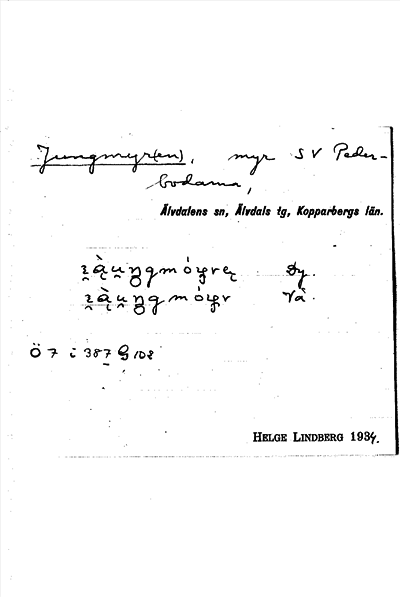 Jungmyr(en), myr SV Peder-
bodarna,
Älvdalens sn, Älvdals tg, Kopparbergs län.
Dy.
Va.
Ö 7 i 387 G 108
HELGE LINDBERG 1934.